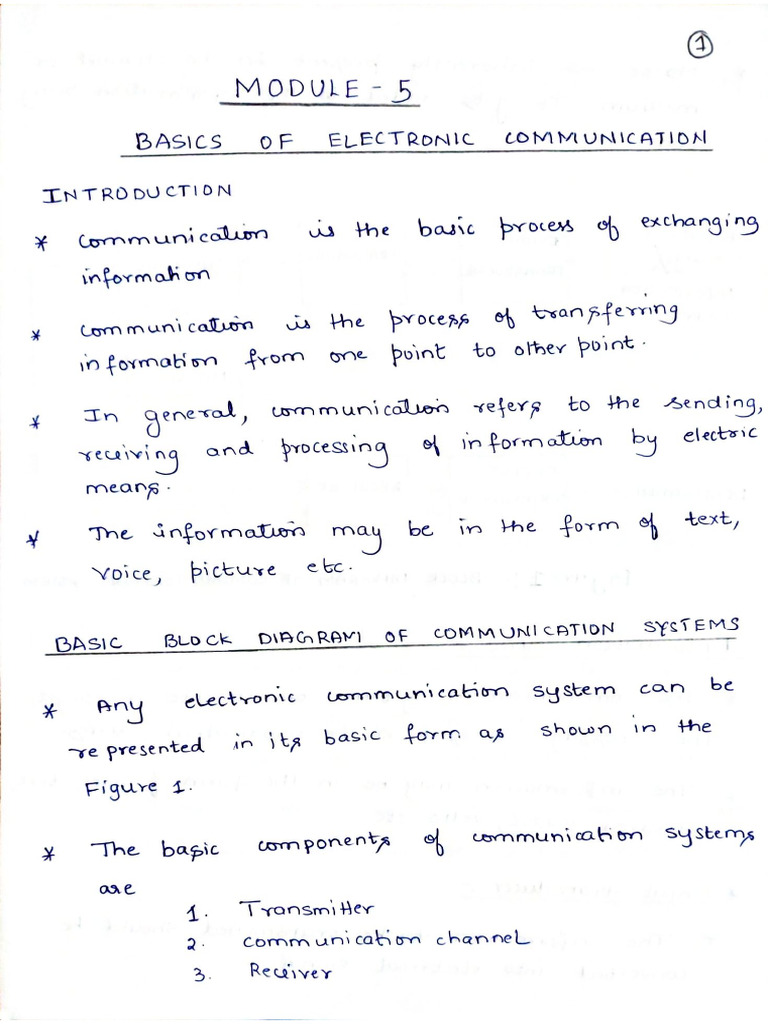 1
MODULE - 5
BASICS OF ELECTRONIC COMMUNICATION
INTRODUCTION
* Communication is the basic process of exchanging
information
* Communication is the process of transferring
information from one point to other point.
* In general, communication refers to the sending,
receiving and processing of information by electric
means.
* The information may be in the form of text,
voice, picture etc.
BASIC BLOCK DIAGRAM OF COMMUNICATION SYSTEMS
* Any electronic communication system can be
represented in its basic form as shown in the
Figure 1.
* The basic components of communication systems
are
1. Transmitter
2. Communication channel
3. Receiver